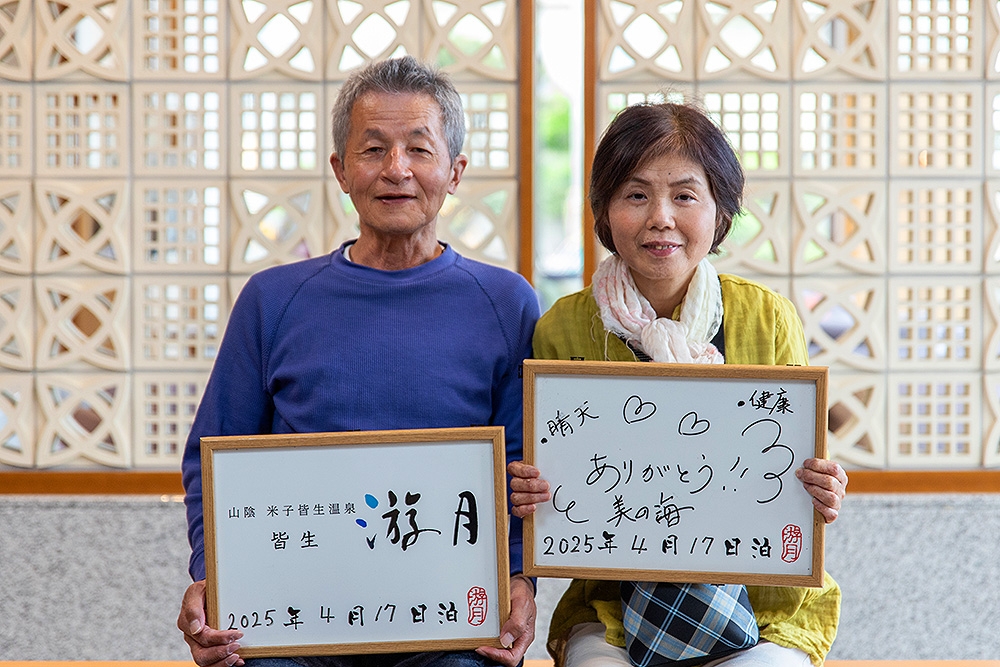 山陰 米子皆生温泉
皆生 游月
2025年 4月17日泊
游月
・晴天
・健康
ありがとう!!
美の海
2025年4月17日泊
游月